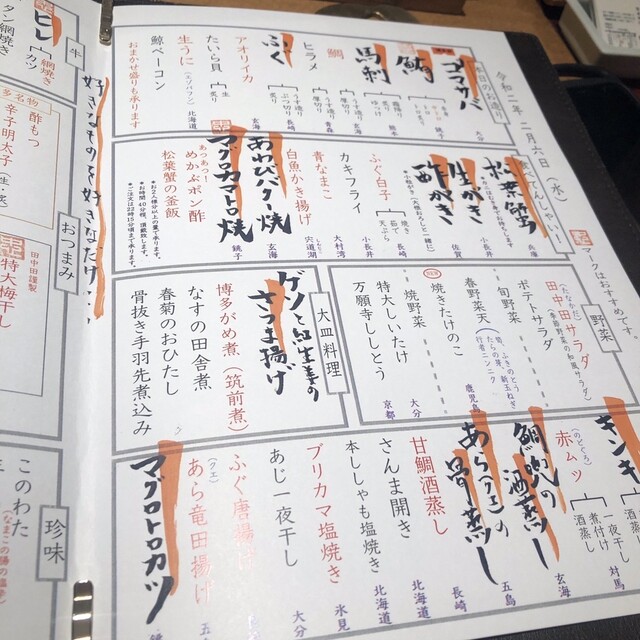 令和二年二月六日(水)
本日のお造り
ゴマサバ
大分
鮪
馬刺
熊本
鯛
ヒラメ
ふく
アオリイカ
たいら貝
生
炙り
生うに
北海道
鯨ベーコン
おまかせ盛りも承ります
食べてんしゃい!
松葉蟹
兵庫
生かき
小長井
酢かき
佐賀
ふぐ白子
焼き
天ぷら
長崎
カキフライ
小長井
青なまこ
大村湾
白魚かき揚げ
宍道湖
あわびバター焼
玄海
マグロカマトロ焼
銚子
あつあつ
めかぶポン酢
松葉蟹の釜飯
マークはおすすめです。
野菜
田中田サラダ
(季節野菜の和風サラダ)
ポテトサラダ
旬野菜
春野菜天
行者ニンニク
焼きたけのこ
鹿児島
焼野菜
大分
特大しいたけ
万願寺ししとう
京都
大皿料理
ゲソと紅生姜の
さつま揚げ
博多がめ煮(筑前煮)
なすの田舎煮
春菊のおひたし
骨抜き手羽先煮込み
キンキ
酒蒸し
一夜干し
煮付け
酒蒸し
対馬
赤ムツ
(のどぐろ)
玄海
鯛兜の
酒蒸し
五島
あら(クエ)の
骨蒸し
長崎
甘鯛酒蒸し
さんま開き
北海道
本ししゃも塩焼き
北海道
ブリカマ塩焼き
氷見
あじ一夜干し
大分
ふぐ唐揚げ
あら竜田揚げ
(クエ)
マグロトロカツ
牛
ヒレ
網焼き
カツ
タン網焼き
好きなものを好きなだけ…
おつまみ
多名物
酢もつ
辛子明太子
田中田謹製
特大梅干し
珍味
このわた
(なまこの腸の塩辛)